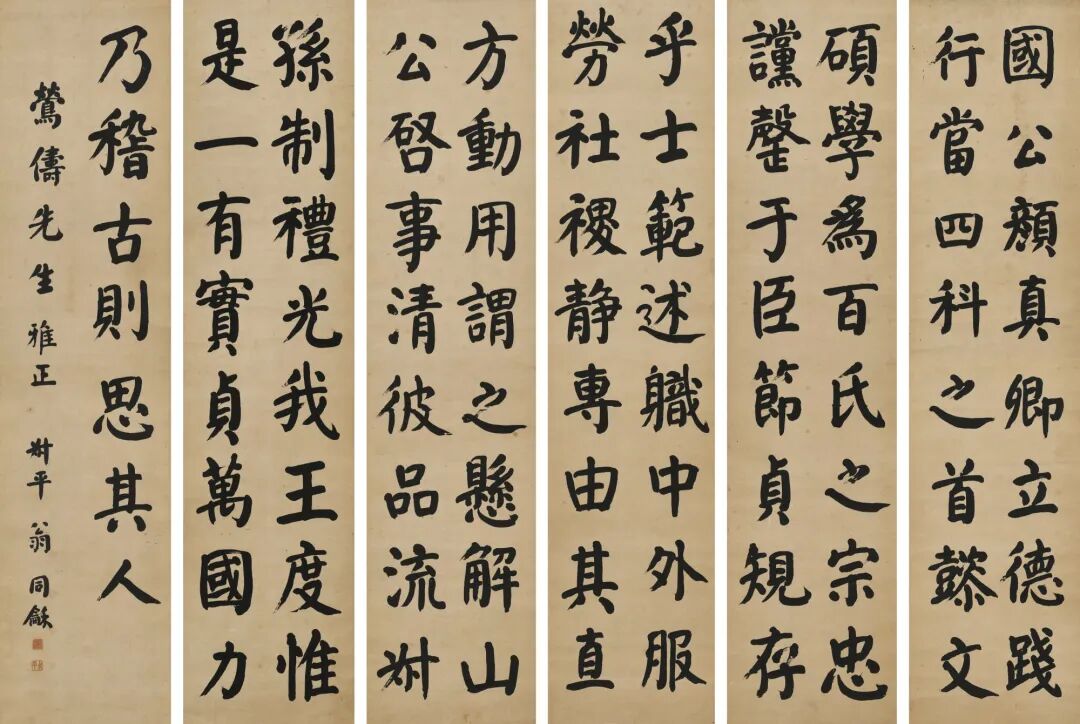 國公顏真卿立德踐
行當四科之首懿文
碩學爲百氏之宗忠
讜罄于臣節貞規存
乎士範述職中外服
勞社稷静專由其直
方動用謂之懸解山
公啓事清彼品流叔
孫制禮光我王度惟
是一有實貞萬國力
乃稽古則思其人
鶯儔先生雅正 叔平翁同龢